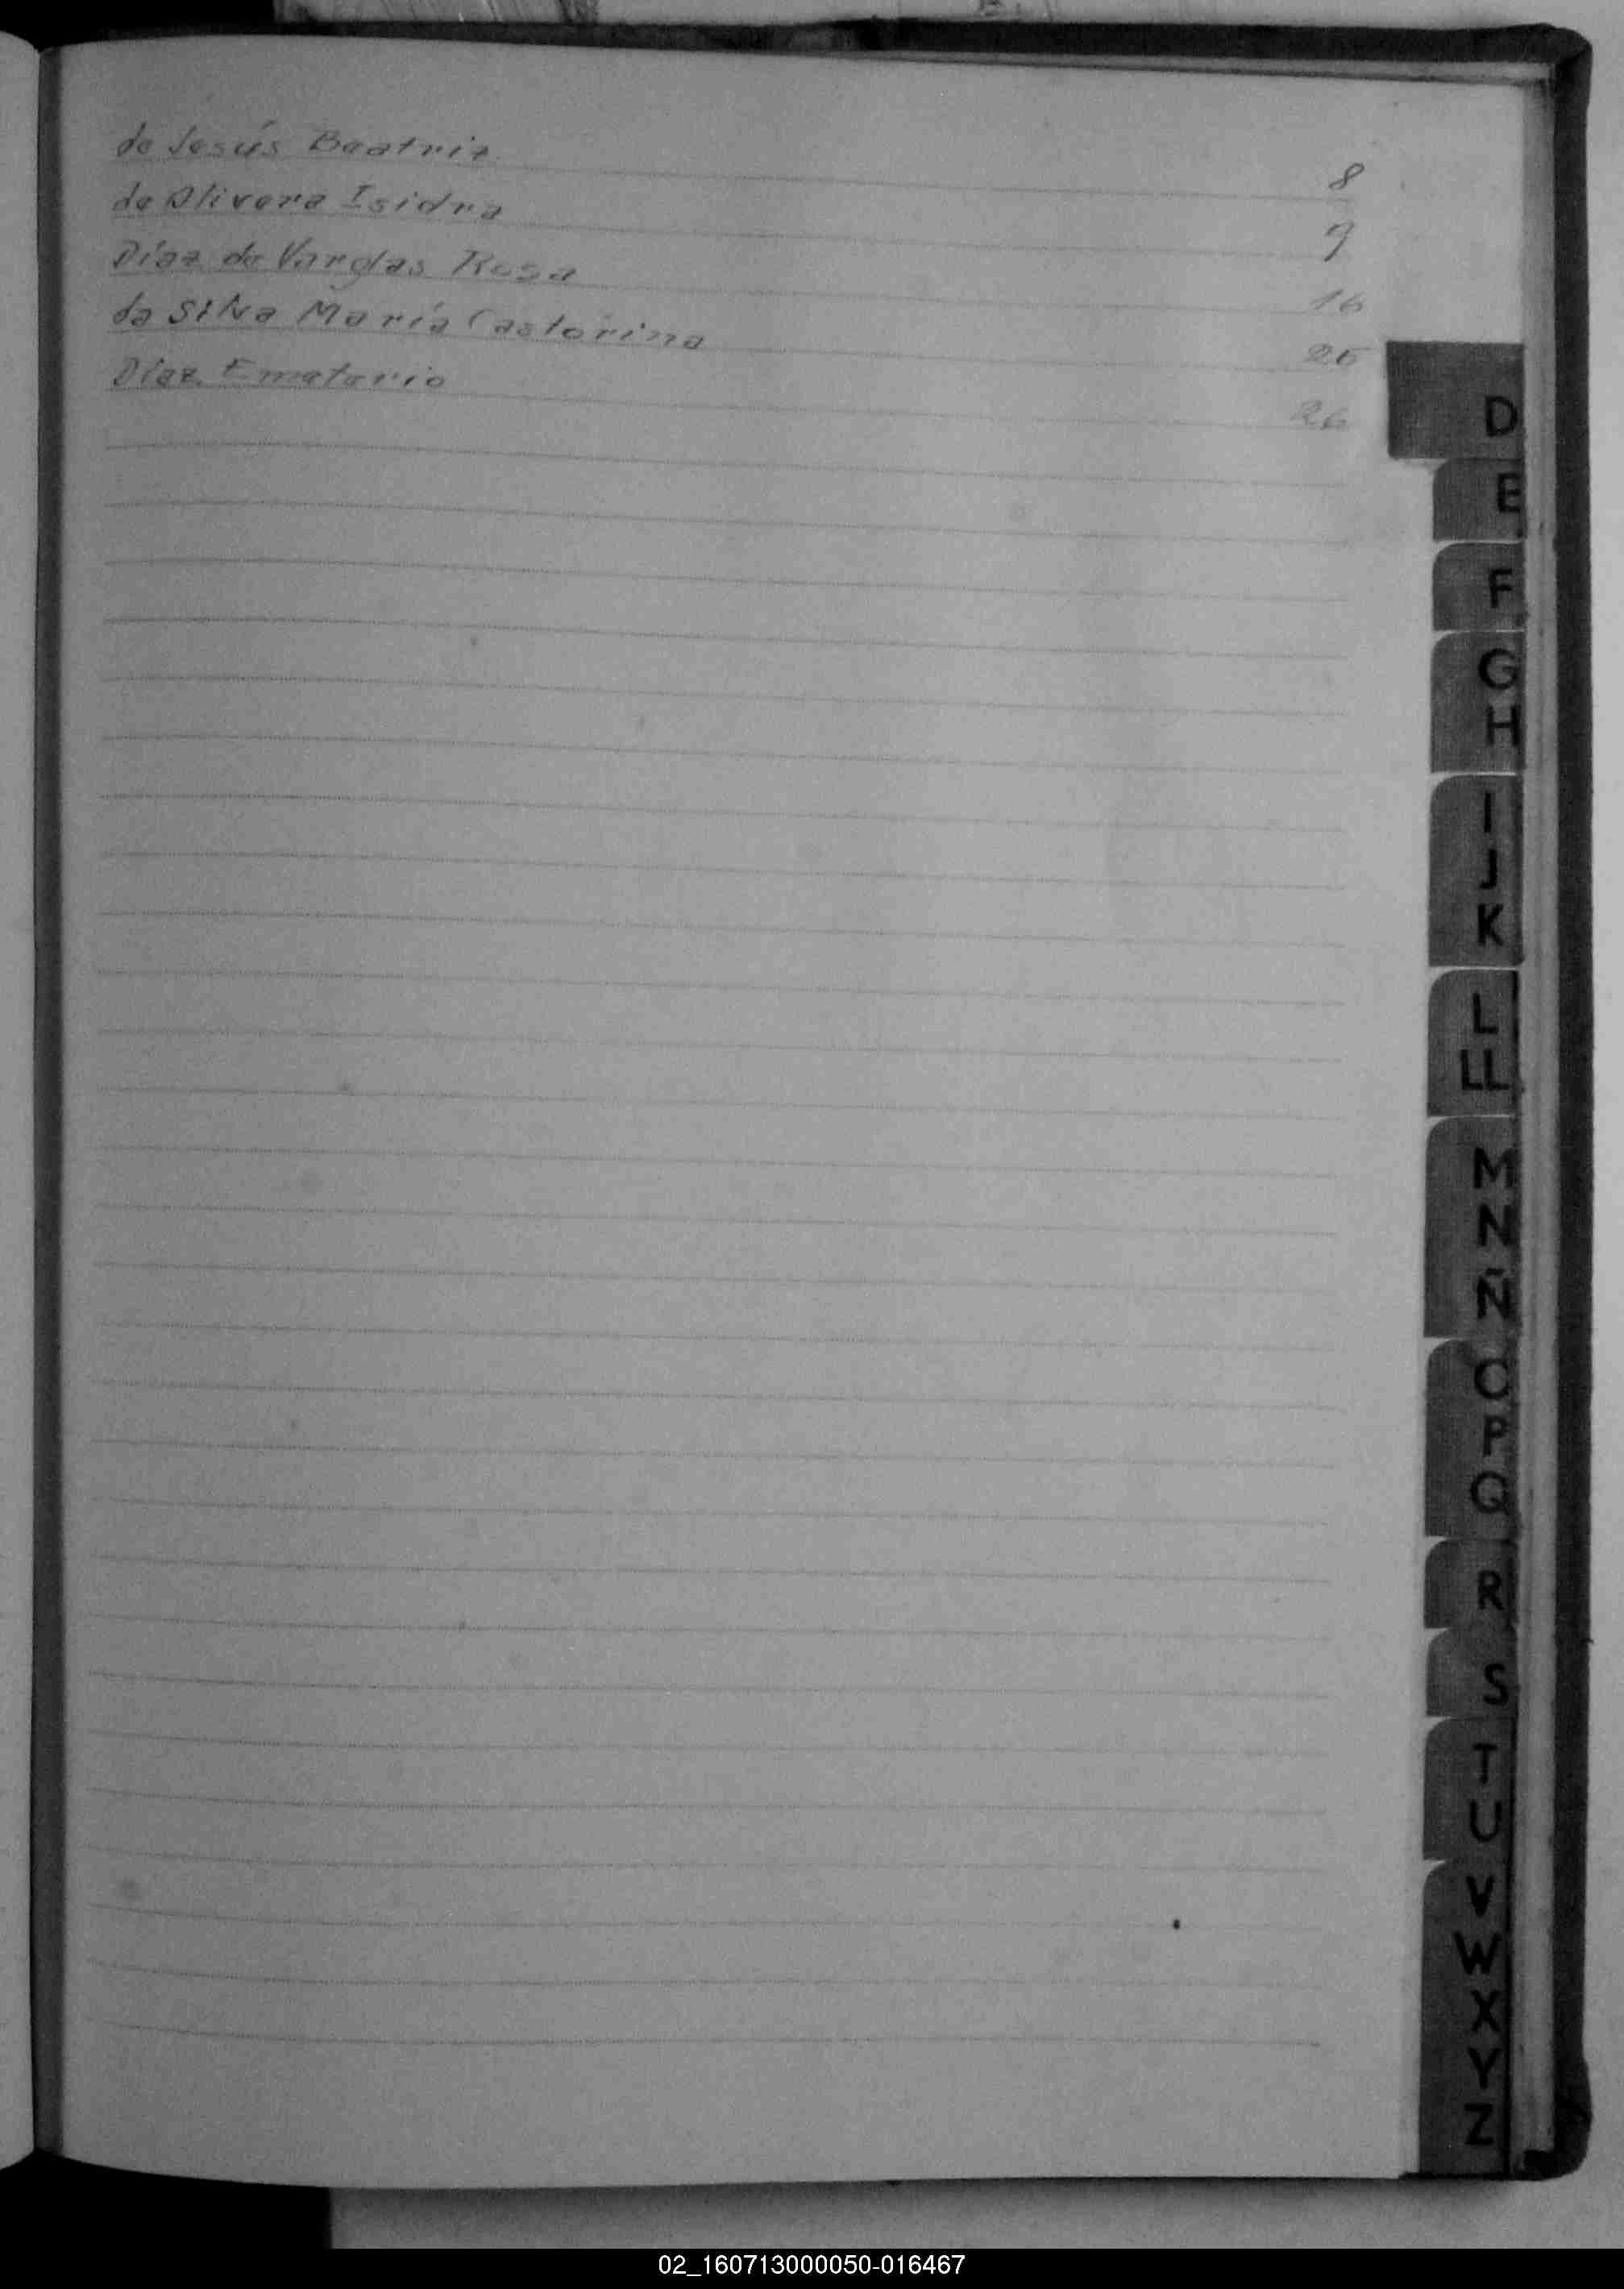 de Jesús Beatriz 8
de Olivera Isidra 9
Díaz de Vargas Rosa 16
da Silva María Castorina 25
Díaz Emeterio 26
D
E
F
G
H
I
J
K
L
LL
M
N
Ñ
O
P
Q
R
S
T
U
V
W
X
Y
Z
02_160713000050-016467